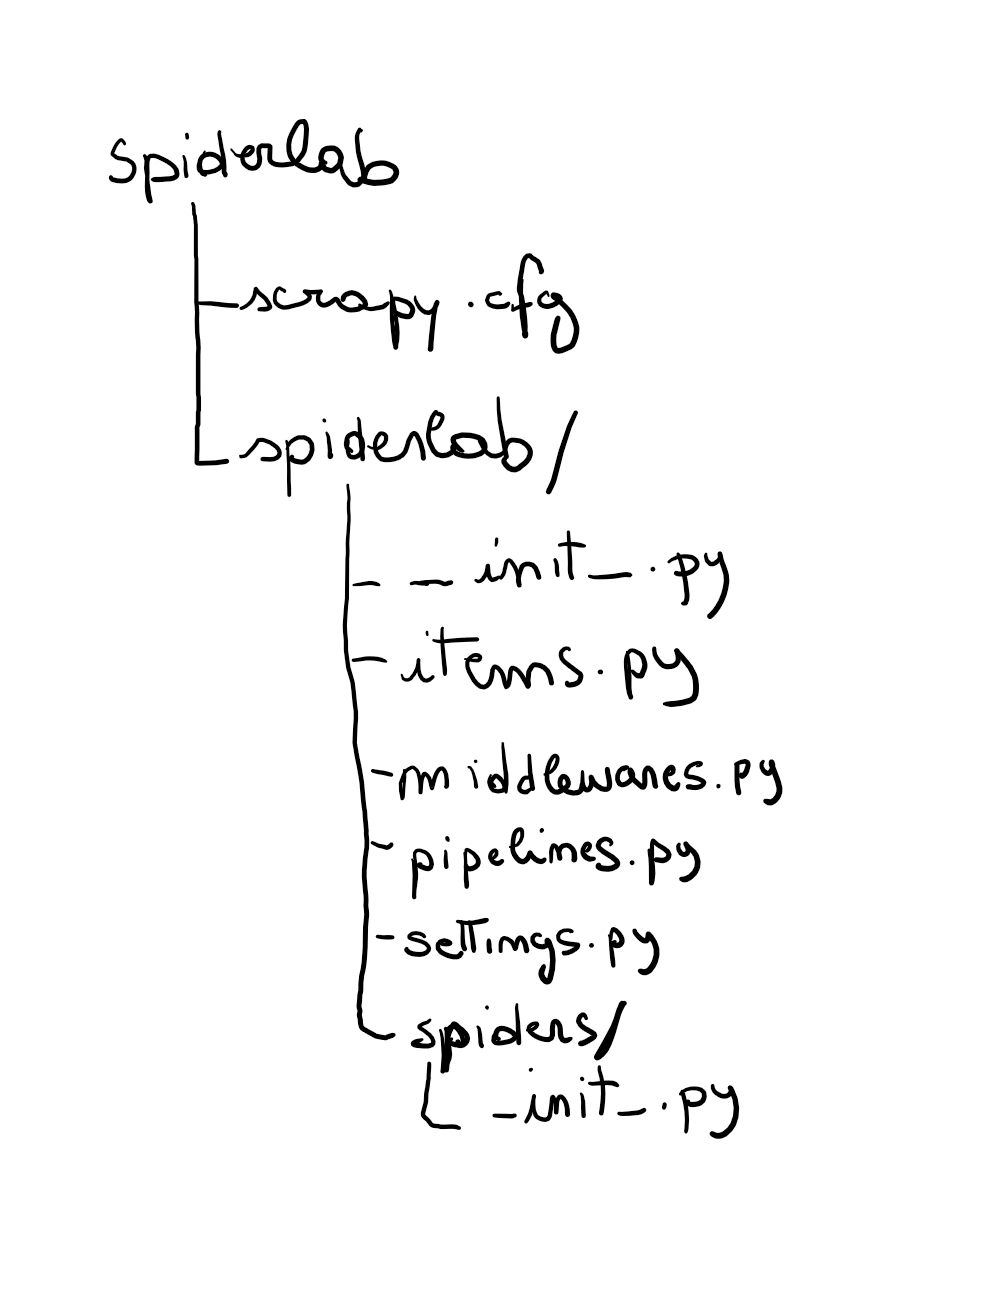 spiderlab
scrapy.cfg
spiderlab/
__init__.py
items.py
middlewares.py
pipelines.py
settings.py
spiders/
__init__.py